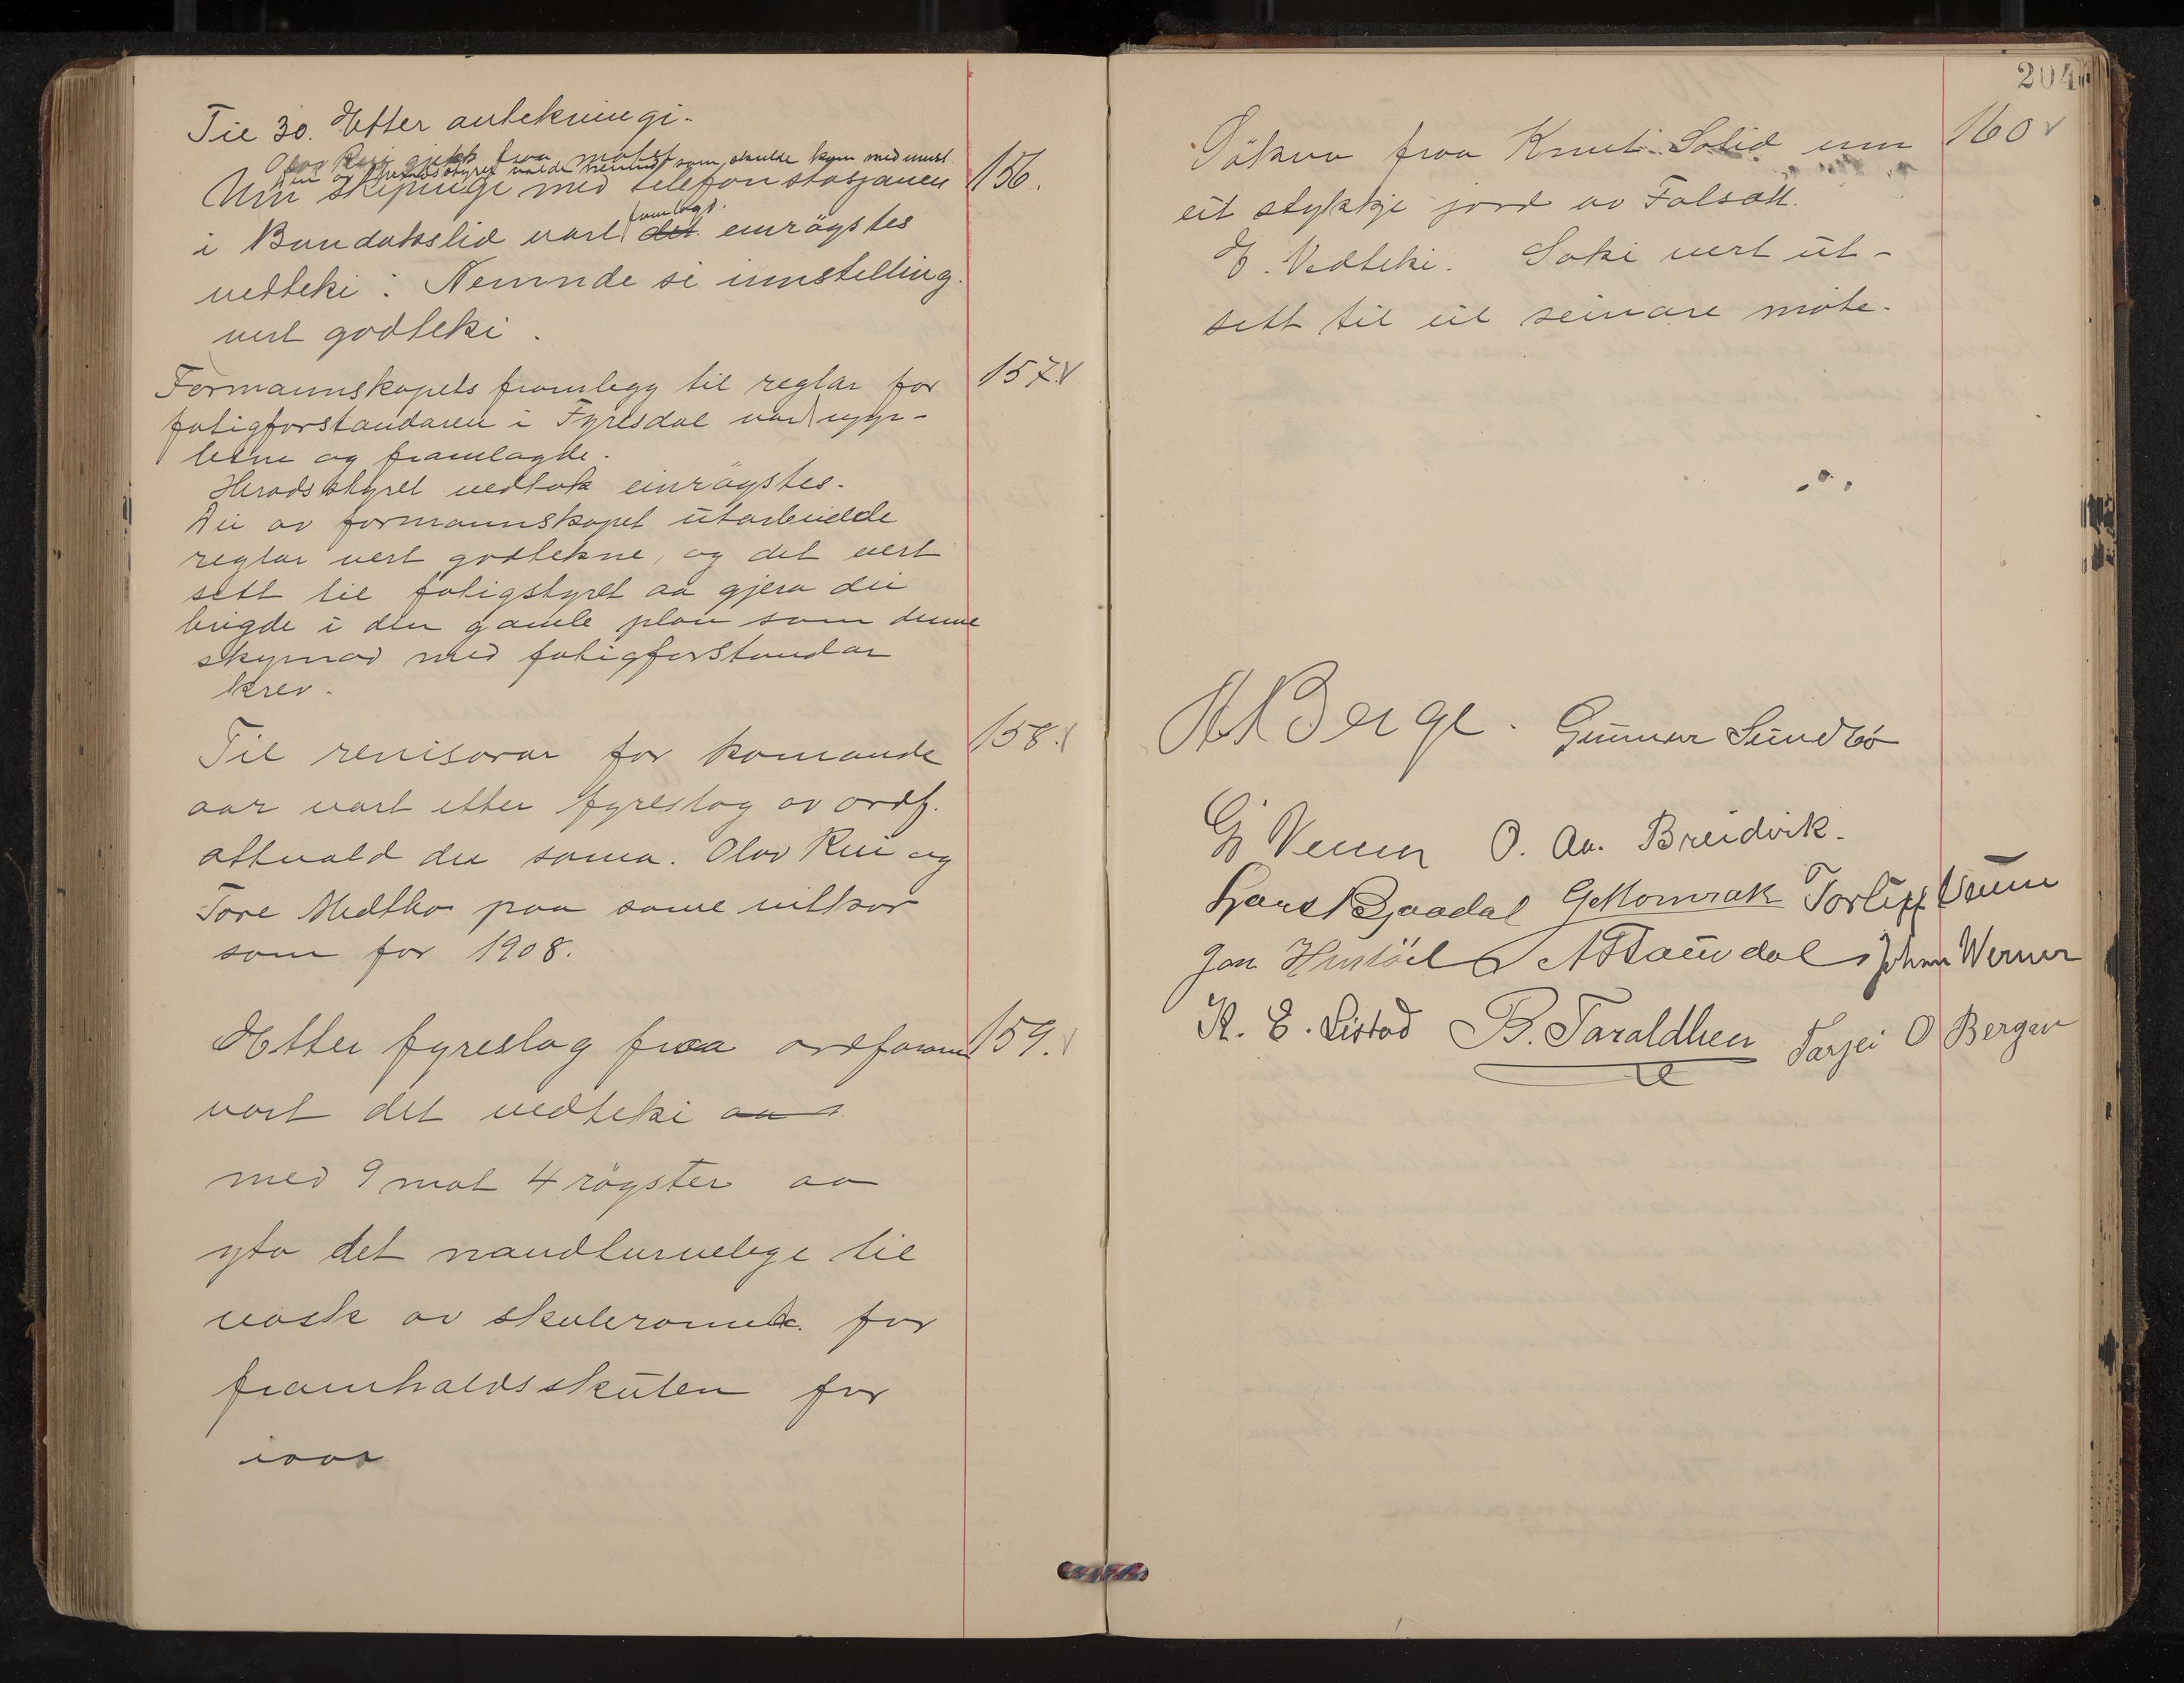 Til 30. Etter antekningi.
Olav Rui gjekk fraa møtet
som skulde kom med innst.
Um skipnige med telefonstasjonen 156.
framlagt.
i Bondalsslid vart det einrøystes
vedteki: Nemnde si innstelling
vert godteki.
Formannskapets framlegg til reglar for 157. V
fatigforstandaren i Fyresdal vart upp-
lesne og framlagde.
Heradsstyret vedtok einrøystes.
Dei av formannskapet utarbeidde
reglar vert godtekne, og det vert
sett til fatigstyret aa gjera dei
brigde i den gamle plan som denne
skipnad med fatigforstandar
krev.
Til revisorar for komande 158. V
aar vart etter fyreslag av ordf.
attvald dei sama. Olav Rui og
Tore Midtbø paa same vilkor
som for 1908.
Etter fyreslag fraa ordføraren 159. V
vart det vedteki aa
med 9 mot 4 røyster aa
yta det naudturvelege til
vask av skuleromet for
framhaldsskulen for
iaar
204
Søknn fraa Knut Solid um 160 V
eit stykkje jord av Folsætt.
H. Vedteki. Saki vert ut-
sett til eit seinare møte.
H K Berge. Gunnar Sundbø
Gj Veum O. Aa. Breidvik.
G Momrak Torleif Veum
Jan A Johan Werner
K. E. Listod B. Taraldlien Tarjei O Bergan